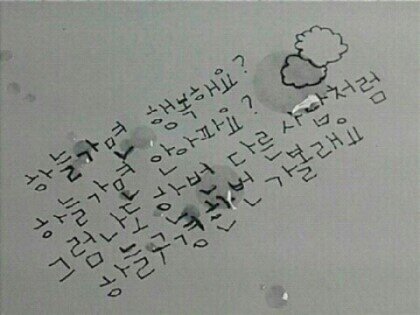 하늘가면 행복해요?
하늘가면 안아파요?
그럼 나도 한번 다른 사람처럼
하늘구경 한번 가볼래요